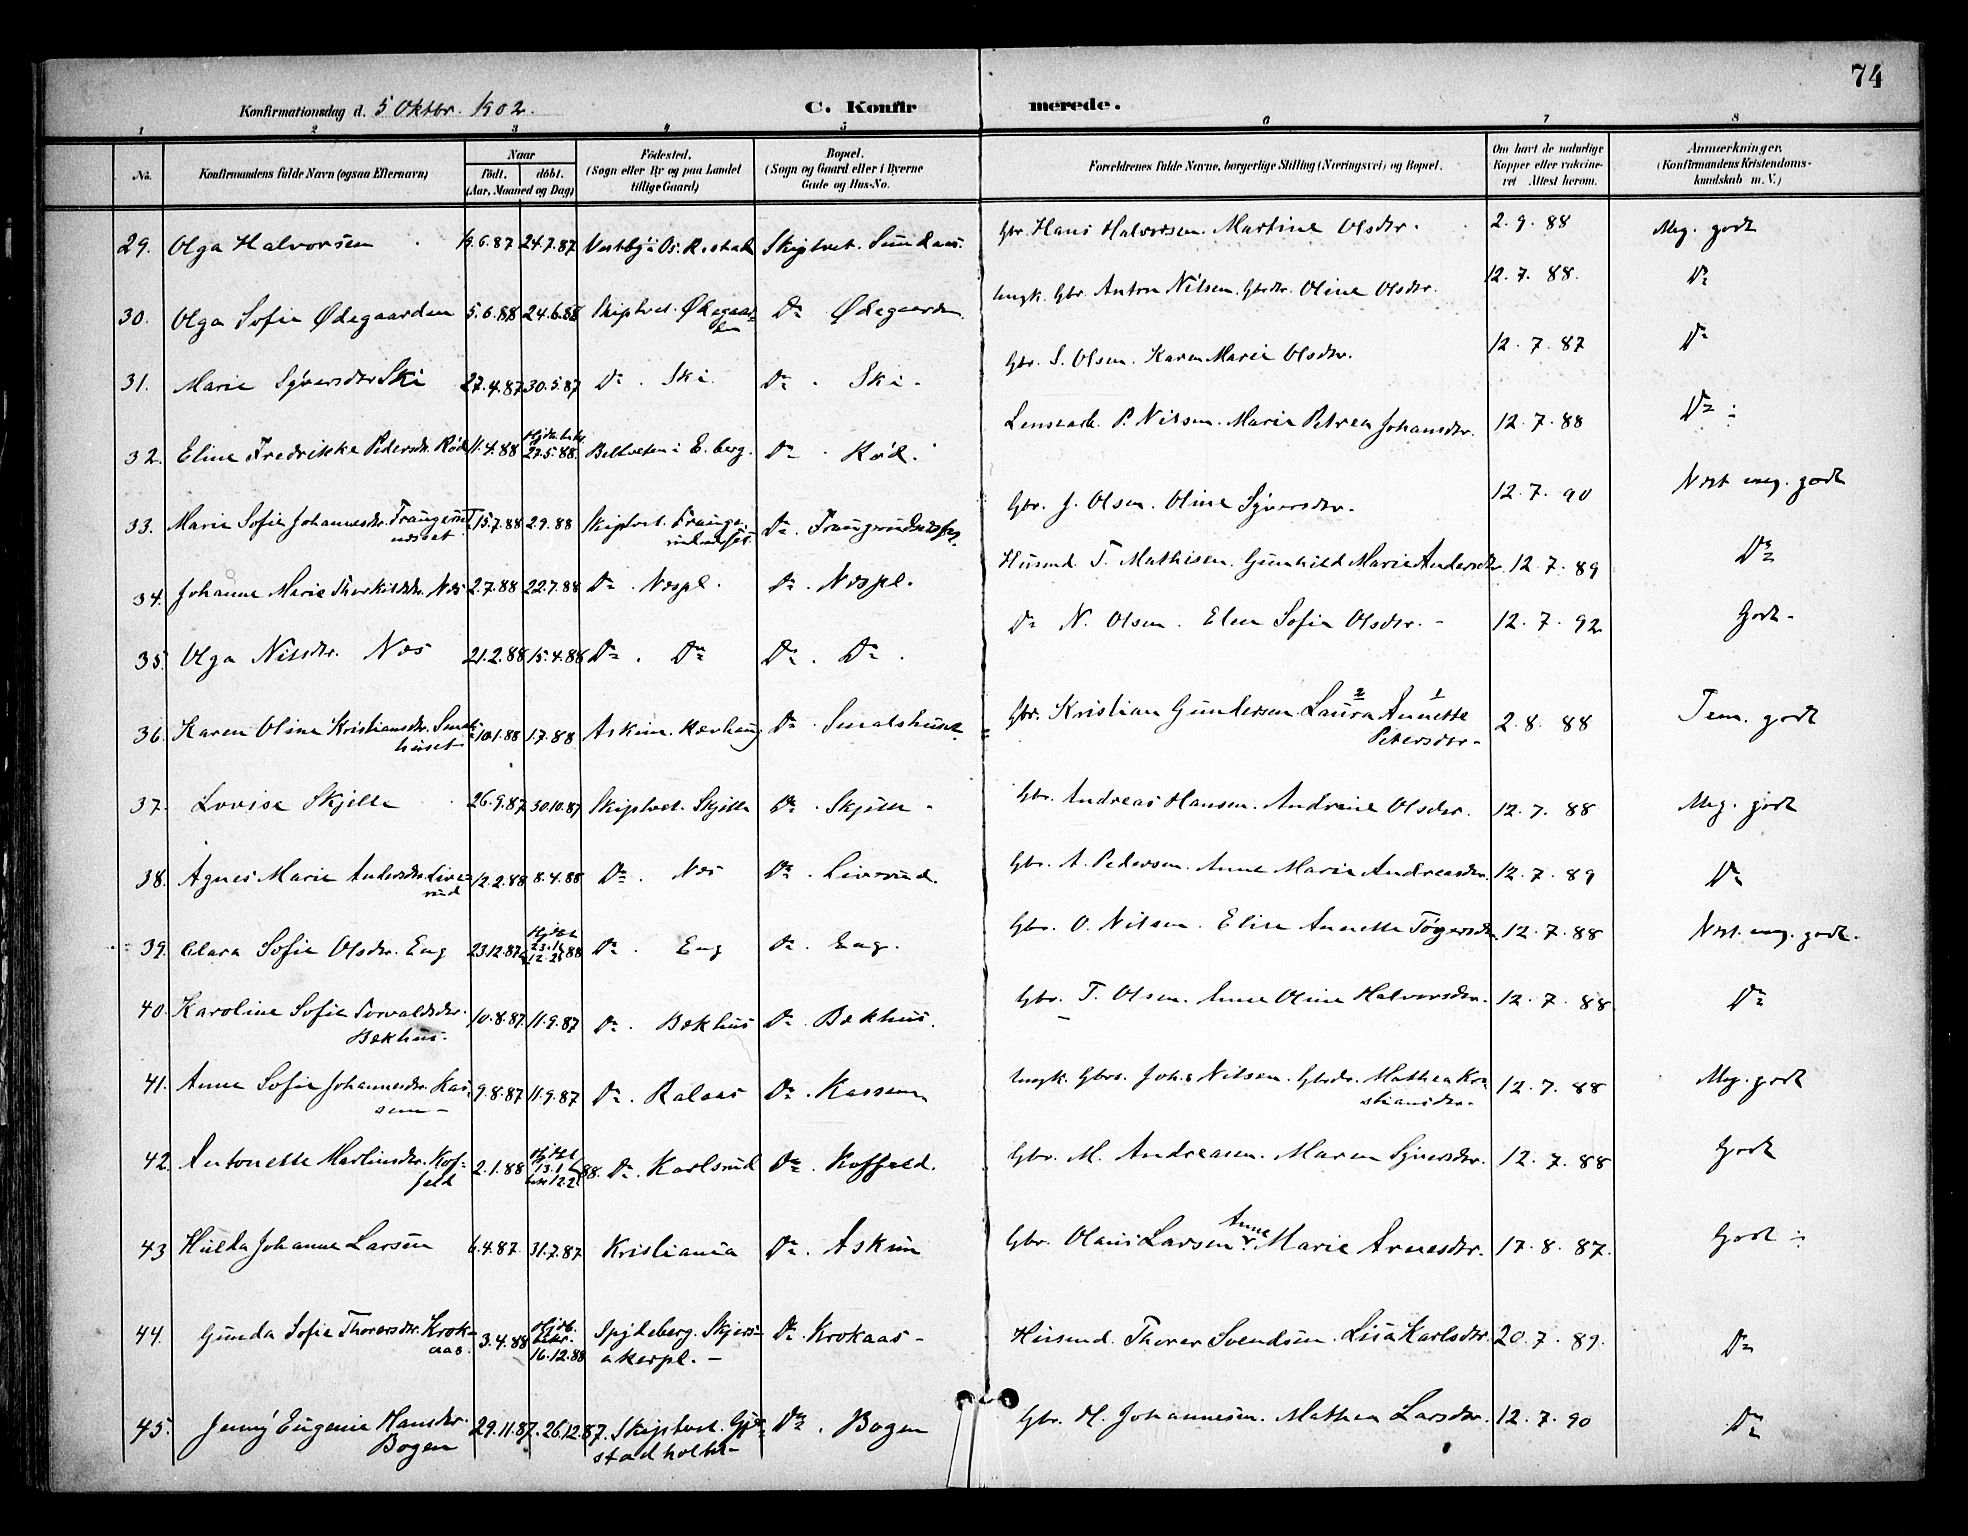 74
Konfirmationsdag d. 5 Oktbr. 1902.
C. Konfirmerede.
1 2 3 4 5 6 7 8
No. Konfirmandens fulde Navn (ogsaa Efternavn) Naar født. døbt. (Aar, Maaned og Dag) Fødested. (Sogn eller By og paa Landet tillige Gaard) Bopæl. (Sogn og Gaard eller i Byerne Gade og Hus-No. Forældrenes fulde Navne, borgerlige Stilling (Næringsvei) og Bopæl. Om havt de naturlige Kopper eller vaccineret Attest herom. Anmærkninger. (Konfirmandens Kristendomskundskab m. V.)
29. Olga Halvorsen 19.6.87 24.7.87 Vestby i Ås. Skiptvet. Sundaas. Gbr. Hans Halvorsen. Martine Olsdtr. 2.9.88 Meg. godt
30. Olga Sofie Ødegaarden 5.6.88 24.6.88 Skiptvet. Ødegaarden Do Ødegaarden. Ungk. Gbr. Anton Nilsen. Gbrdtr. Oline Olsdtr. 12.7.88. Do
31. Marie Syversdtr Ski 27.4.87 30.5.87 Do. Ski. Do. Ski. Gbr. S. Olsen. Karen Marie Olsdtr. 12.7.87 Do
32. Eline Fredrikke Pedersdtr. Rød 11.4.88 27.5.88. i E.berg. Do. Rød. P. Nilsen. Marie Petrea Johansdtr. 12.7.88 Do
33. Marie Sofie Johannesdtr. Traugerudnesset 15.7.88 2.9.88 Skiptvet. Do. Gbr. J. Olsen. Oline Syversdtr. 12.7.90 Næst meg. godt
34. Johanne Marie Thorkildsdtr. Næs 2.7.88 22.7.88 Do. Næspl. Do. Næspl. Husmd. T. Mathisen. Gunhild Marie Andersdtr 12.7.89 Do
35. Olga Nilsdtr. Næs 21.2.88 15.4.88 Do. Do Do. Do. Do N. Olsen. Elen Sofie Olsdtr. 12.7.92 Godt.
36. Karen Oline Kristiansdtr. Smalshuset 10.1.88 1.7.88 Askim. Rævhaug Do. Smalshuset. Gbr. Kristian Gundersen. Laura Annette Petersdtr. 2.8.88 Tem. godt
37. Lovise Skjelle 26.9.87 30.10.87 Skiptvet. Skjelle Do. Skjelle. Gbr. Andreas Hansen. Andrine Olsdtr. 12.7.88 Meg. godt
38. Agnes Marie Andersdtr. Liverud 12.2.88 8.4.88 Do. Næs Do. Liverud. Gbr. A. Pedersen. Anne Marie Andreasdtr. 12.7.89 Do
39. Clara Sofie Olsdtr. Eng 23.12.87 Do. Eng Do. Eng. Gbr. O. Nilsen. Elise Annette Tøgersdtr. 12.7.88 Næst. meg. godt.
40. Karoline Sofie Torvaldsdtr. Bækhus. 10.8.87. 11.9.87 Do. Bækhus Do. Bækhus. Gbr. T. Olsen. Anne Oline Halvorsdtr. 12.7.88 Do
41. Anne Sofie Johannesdtr. Kassem 9.8.87 11.9.87 Do. Ralaas Do. Kassem Ungk. Gbrs. Johs Nilsen. Gbrdr. Mathea Kristiansdtr. 12.7.88 Meg. godt
42. Antonette Martinsdtr. Koffeld 2.1.88 88. Do. Karlsrud Do. Koffeld. Gbr. M. Andreasen. Maren Syversdtr. 12.7.88 Godt
43 Hulda Johanne Larsen 6.4.87. 31.7.87 Kristiania Do. Askim Gbr. Olaus Larsen. Anne Marie Arnesdtr. 17.8.87. Godt
44. Gunda Sofie Thorersdtr. Krokaas. 3.4.88 16.12.88 Spydeberg. Skjersakerpl. Do. Krokaas. Husmd. Thorer Svendsen. Lisa Karlsdtr. 20.7.89. Do
45. Jenny Eugenie Hansdtr. Bogen 29.11.87. 26.12.87. Skiptvet. Do. Bogen Gbr. H. Johannesen. Mathea Larsdtr. 12.7.90 Do